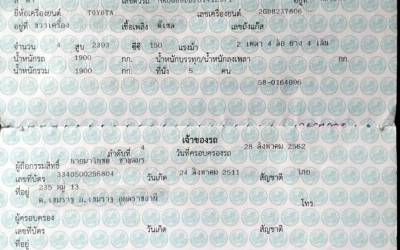 ยี่ห้อเครื่องยนต์ TOYOTA เลขเครื่องยนต์ 2GD8237806
อยู่ที่ ขวาเครื่อง เชื้อเพลิง ดีเซล เลขถังแก๊ส
จำนวน 4 สูบ 2393 ซีซี 150 แรงม้า 2 เพลา 4 ล้อ ยาง 4 เส้น
น้ำหนักรถ 1900 กก. น้ำหนักบรรทุก/น้ำหนักลงเพลา กก.
น้ำหนักรวม 1900 กก. ที่นั่ง 5 คน
58-0164096
เจ้าของรถ
ลำดับที่ 4 วันที่ครอบครองรถ 28 สิงหาคม 2562
ผู้ถือกรรมสิทธิ์
เลขที่บัตร 3340500256804 วันเกิด 24 สิงหาคม 2511 สัญชาติ ไทย
ที่อยู่ 235 หมู่ 13
ต.เขมราฐ อ.เขมราฐ อุบลราชธานี โทร.
ผู้ครอบครอง
เลขที่บัตร วันเกิด สัญชาติ
ที่อยู่